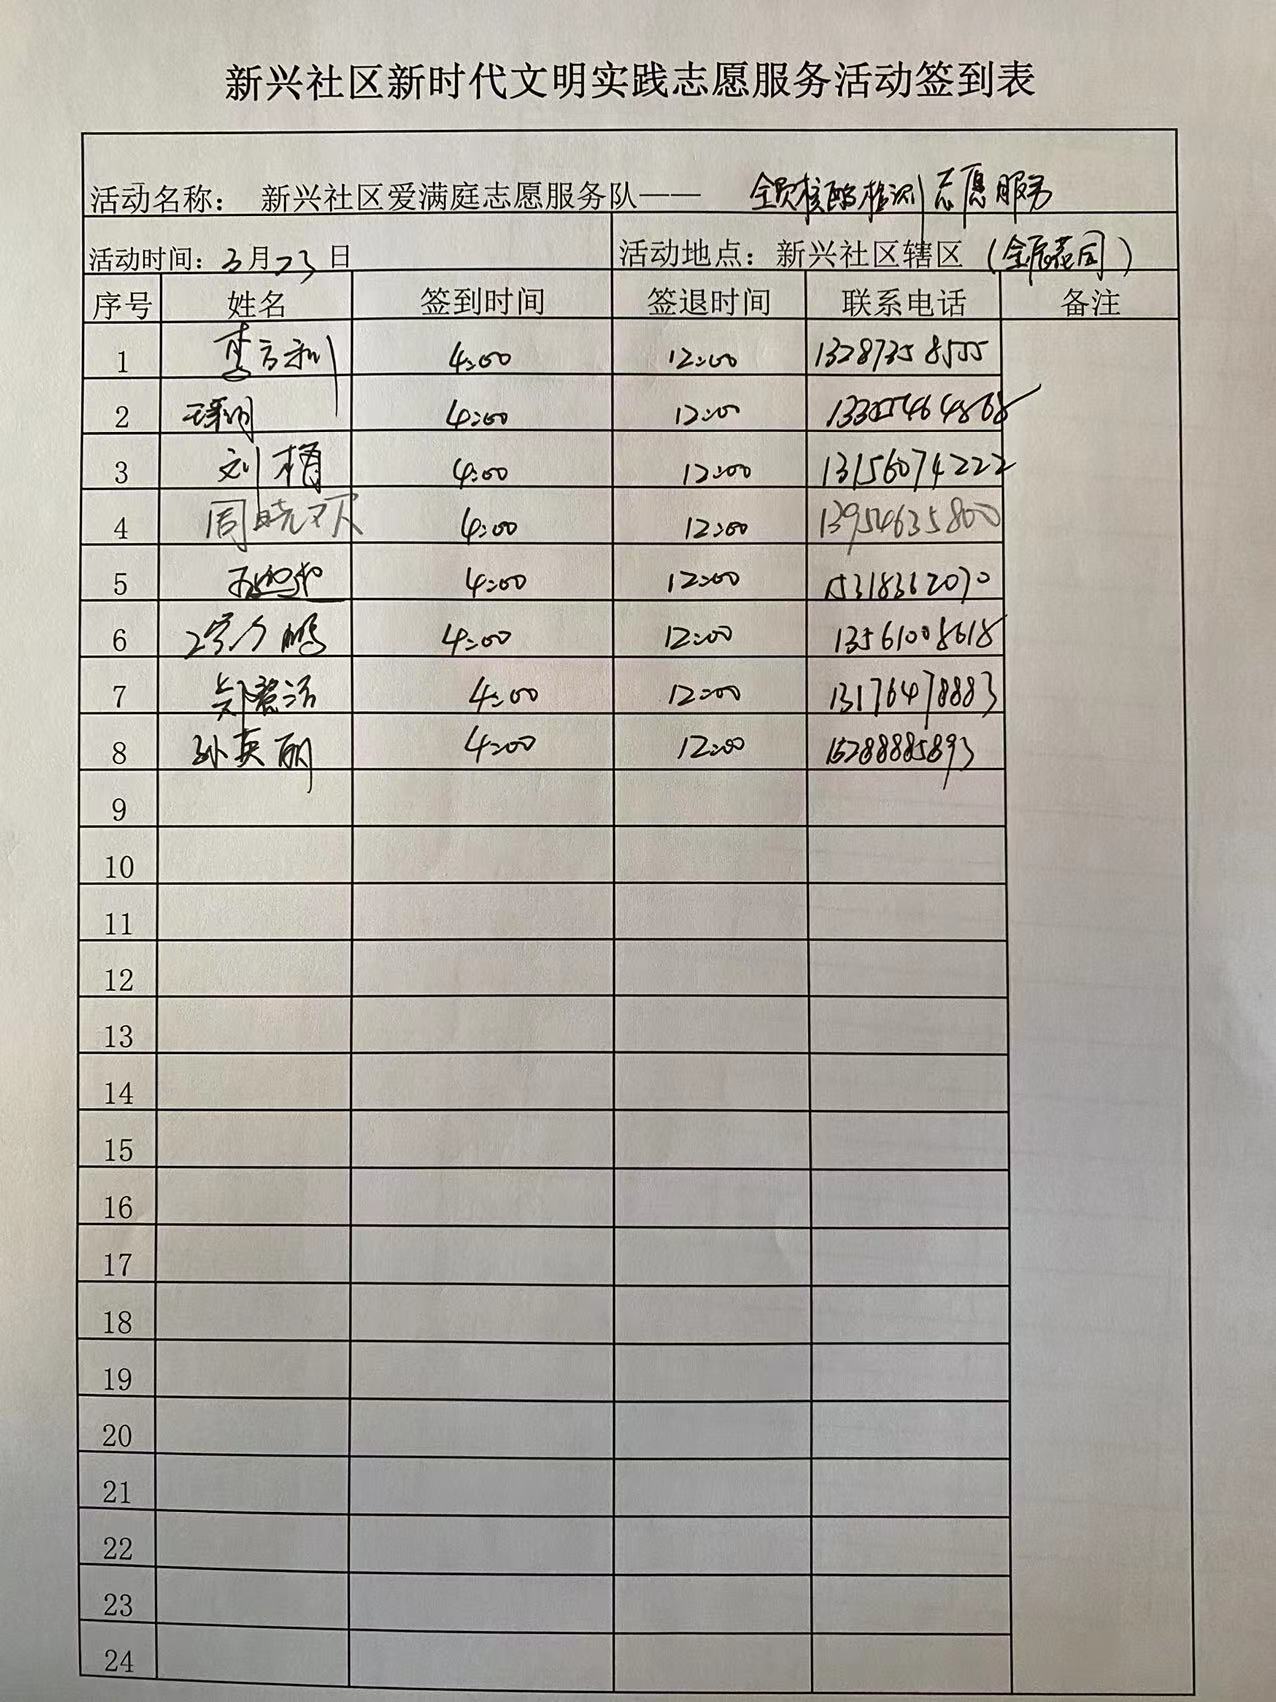 新兴社区新时代文明实践志愿服务活动签到表
活动名称： 新兴社区爱满庭志愿服务队—— 全员核酸检测志愿服务
活动时间：3月23日 活动地点：新兴社区辖区（金辰花园）
序号 姓名 签到时间 签退时间 联系电话 备注
1 李方利 4:00 12:00 13287358555
2 4:00 12:00 13355464868
3 刘梅 4:00 12:00 13156074222
4 周晓双 4:00 12:00 13954635800
5 4:00 12:00 15318362070
6 4:00 12:00 13561008618
7 郑慧洁 4:00 12:00 13176478883
8 孙英丽 4:00 12:00 15288885893
9
10
11
12
13
14
15
16
17
18
19
20
21
22
23
24